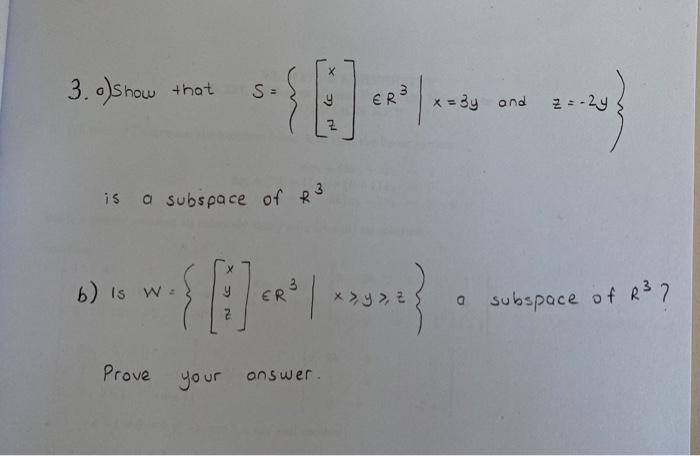 3. a) Show that S = { [x y z] ∈ R³ | x = 3y and z = -2y }
is a subspace of R³
b) Is W = { [x y z] ∈ R³ | x ≥ y ≥ z } a subspace of R³ ?
Prove your answer.